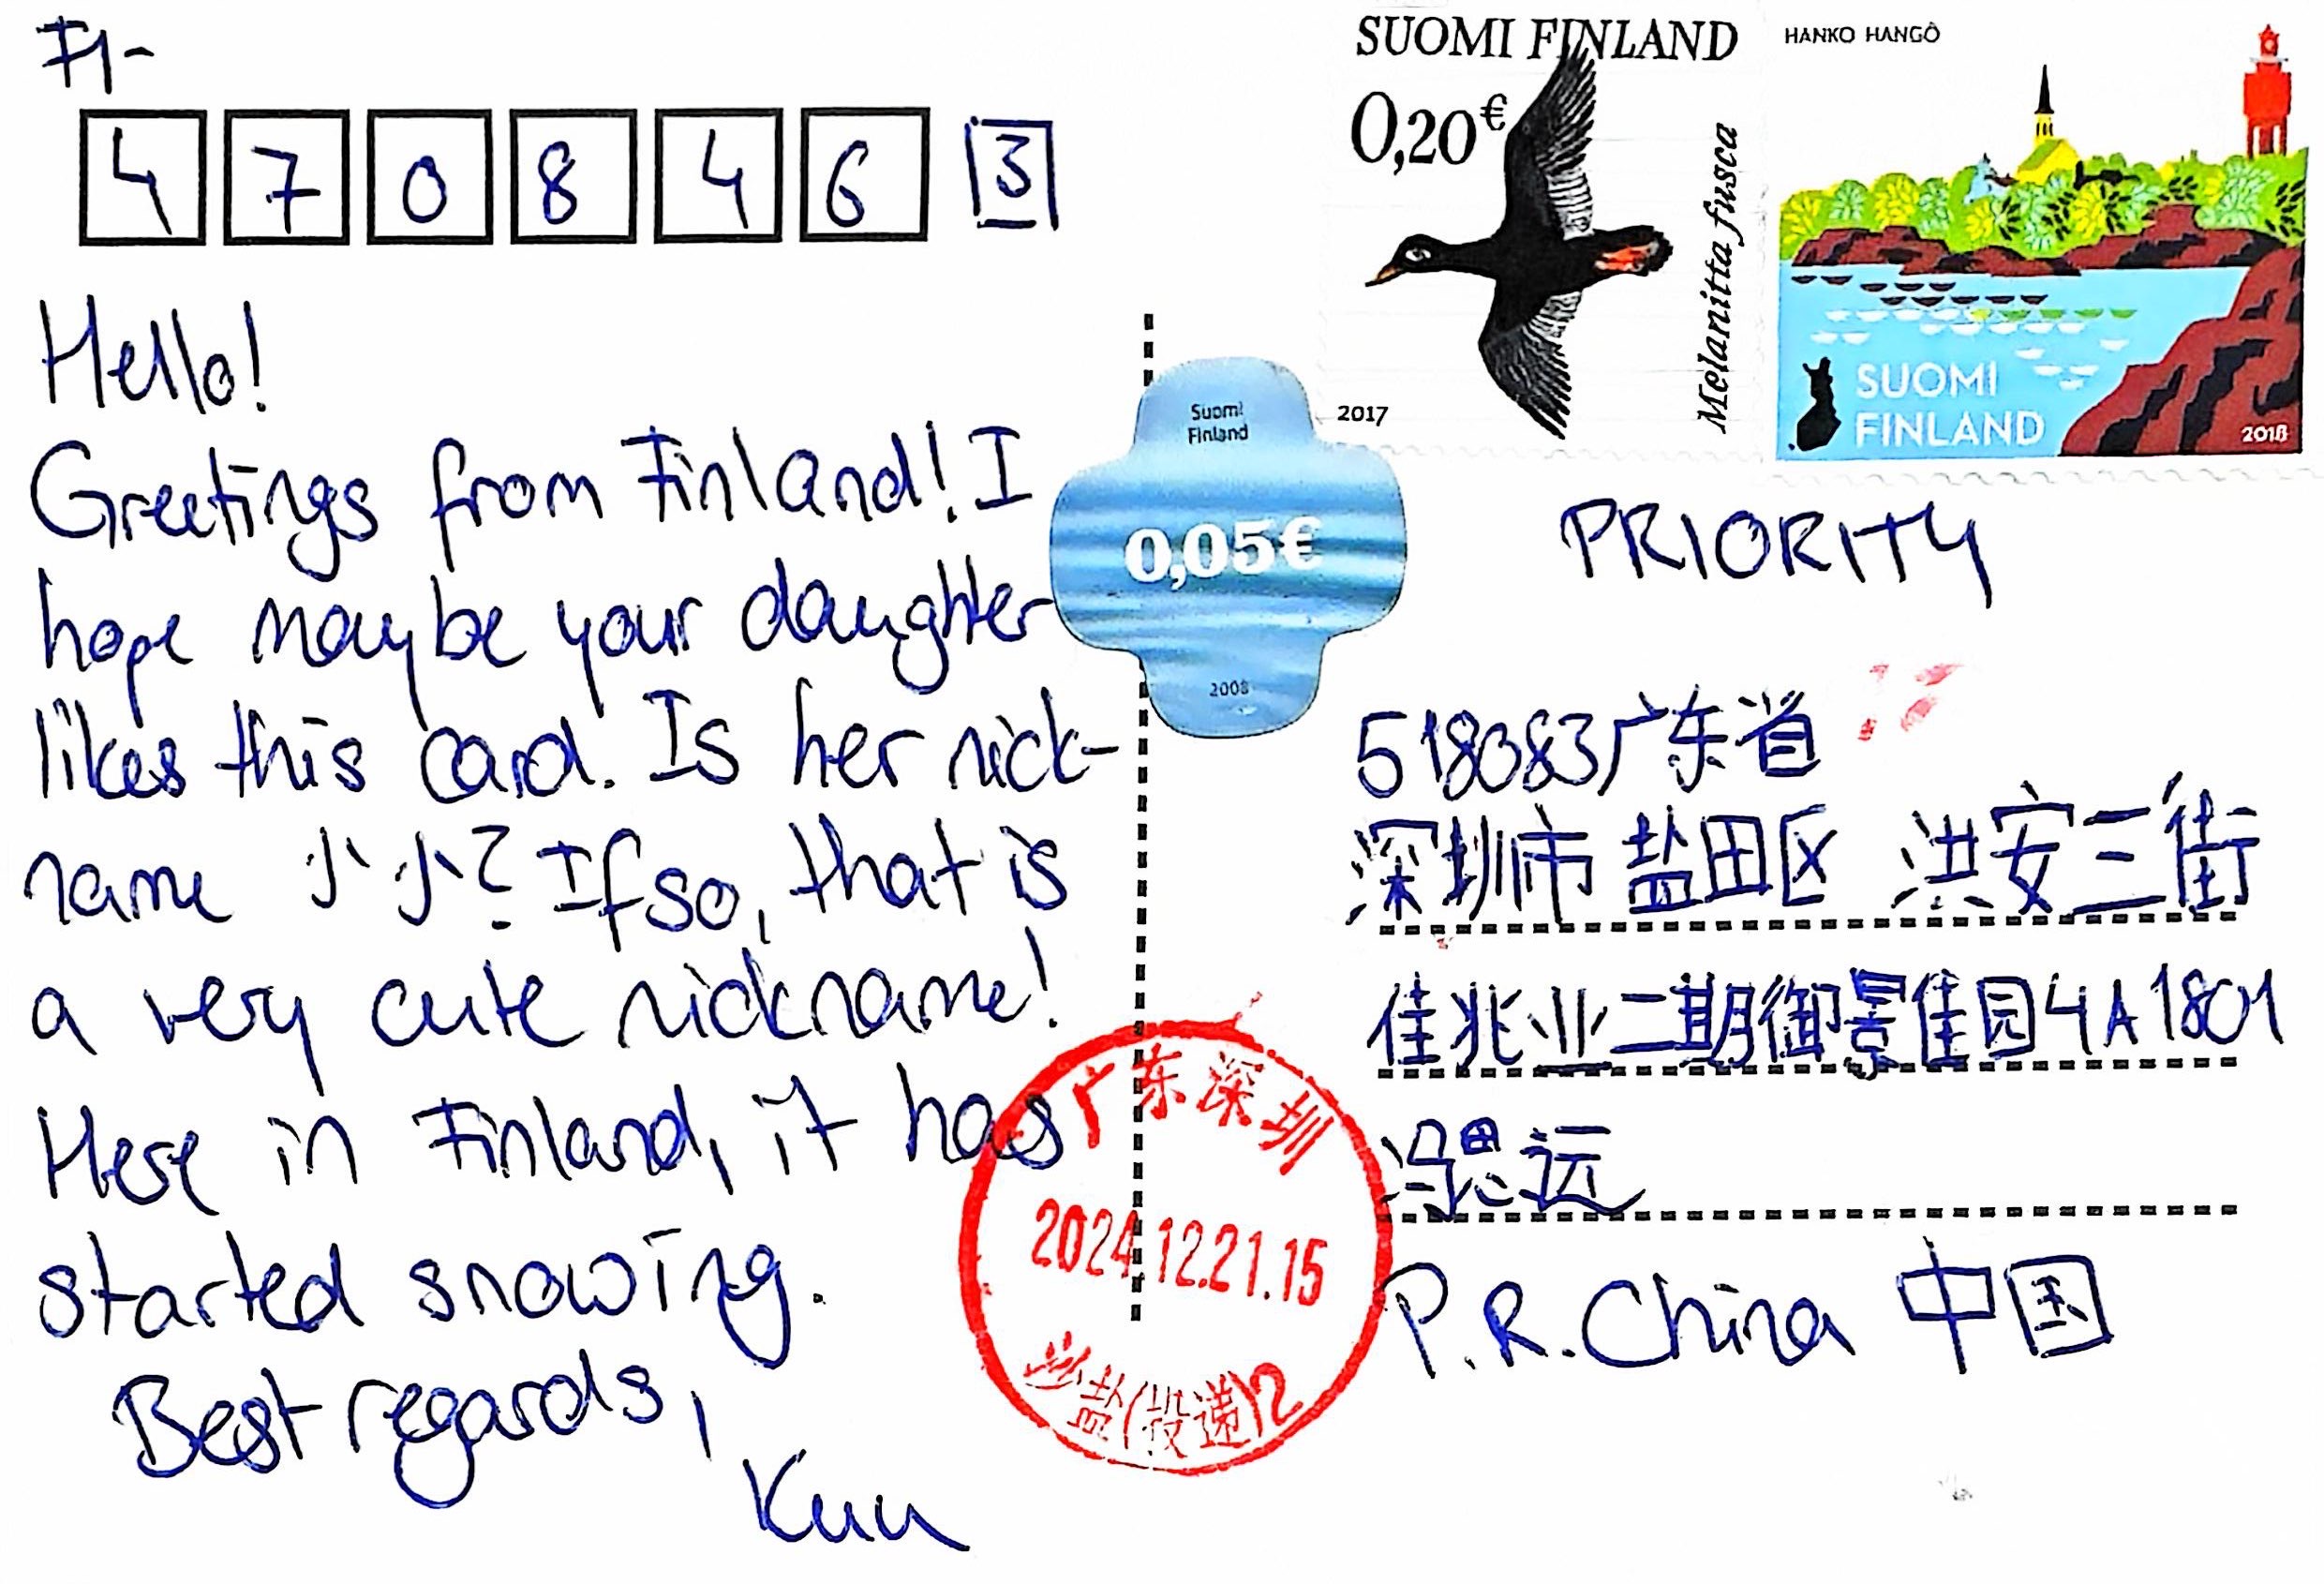 FI-
4 7 0 8 4 6 3
Hello!
Greetings from Finland! I
hope maybe your daughter
likes this card. Is her nick-
name 小小? If so, that is
a very cute nickname!
Here in Finland, it has
started snowing.
Best regards,
Kuu
SUOMI FINLAND
0,20€
Melanitta fusca
2017
HANKO HANGÖ
SUOMI
FINLAND
2018
Suomi
Finland
0,05€
2008
PRIORITY
518083广东省
深圳市 盐田区 洪安三街
佳兆业二期御景佳园4A1801
远
P.R.China 中国
广东深圳
2024.12.21.15
沙盐(投递)2